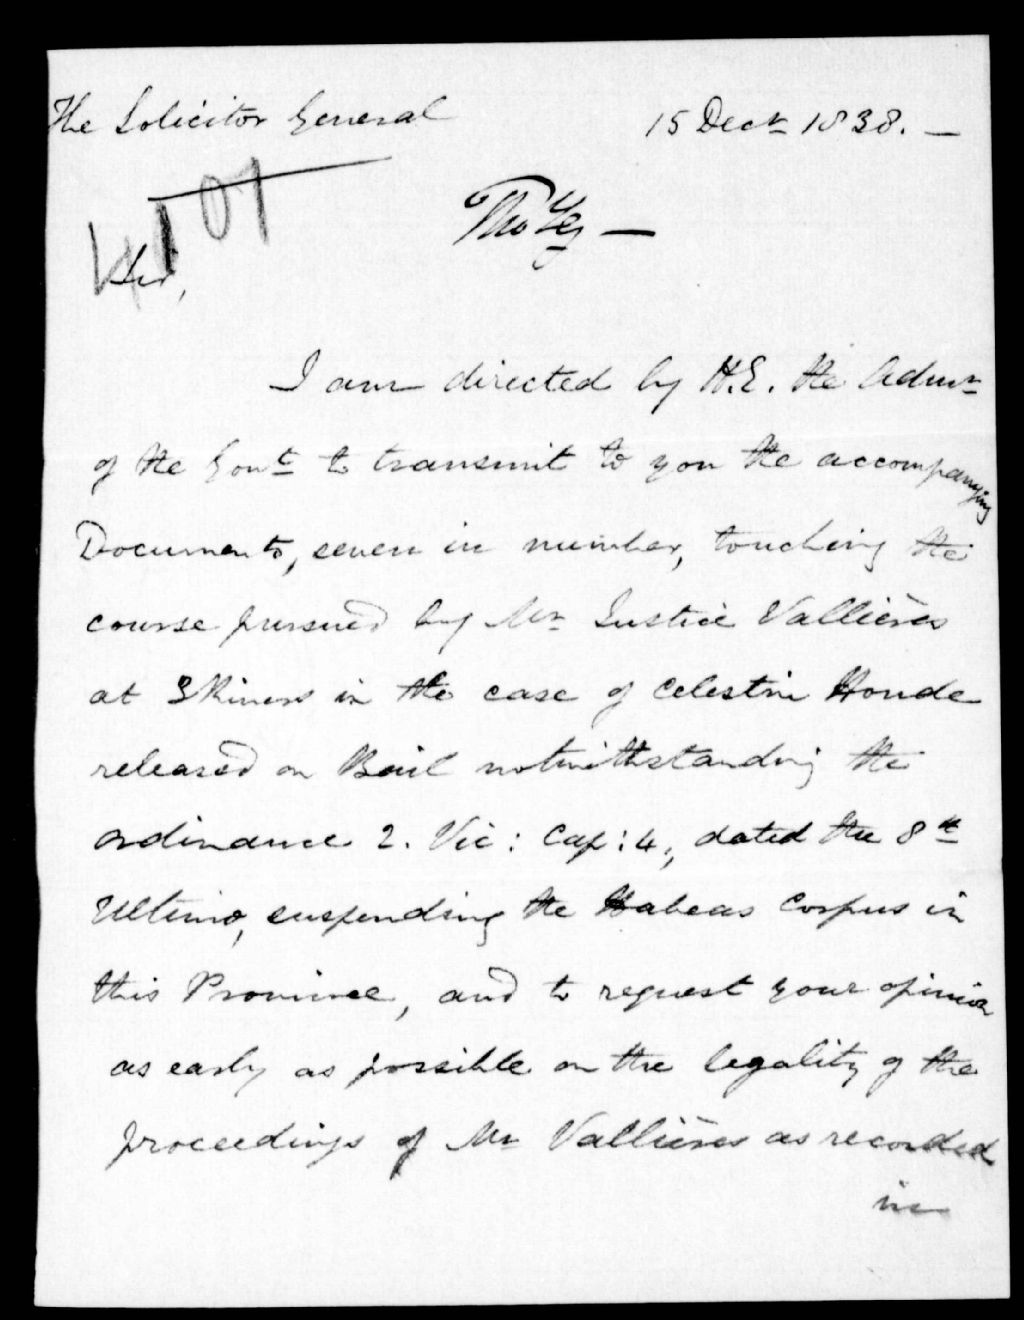 The Solicitor General
15 Decr 1838. —
4107
Sir,
I am directed by H.E. the Admr
of the Govt to transmit to you the accompanying
Documents, seven in number, touching the
course pursued by Mr Justice Vallières
at 3 Rivers in the case of Celestin Houde
released on Bail notwithstanding the
ordinance 2. Vic: Cap: 4, dated the 8th
Ultimo, suspending the Habeas Corpus in
this Province, and to request your opinion
as early as possible on the legality of the
proceedings of Mr Vallières as recorded
in